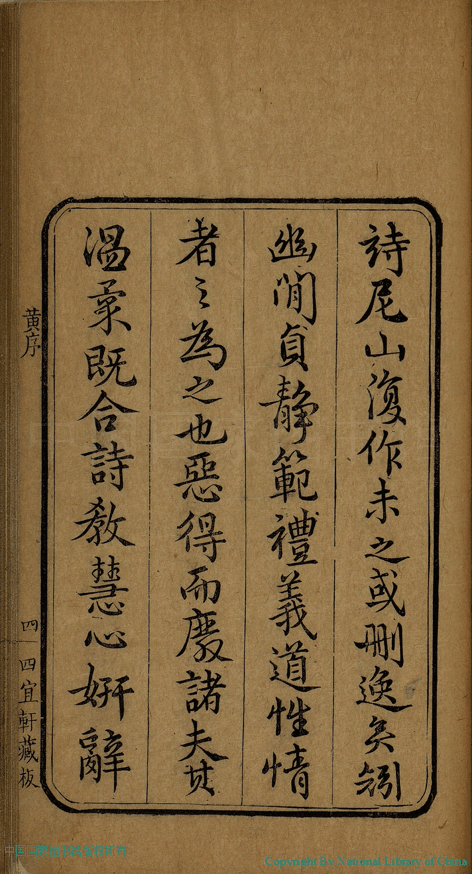 詩尼山復作未之或刪逸矣矧
幽閒貞靜範禮義道性情
者之為之也惡得而廢諸夫其
溫柔既合詩教慧心妍辭
黃序
四
四宜軒藏板
Copyright By National Library of China